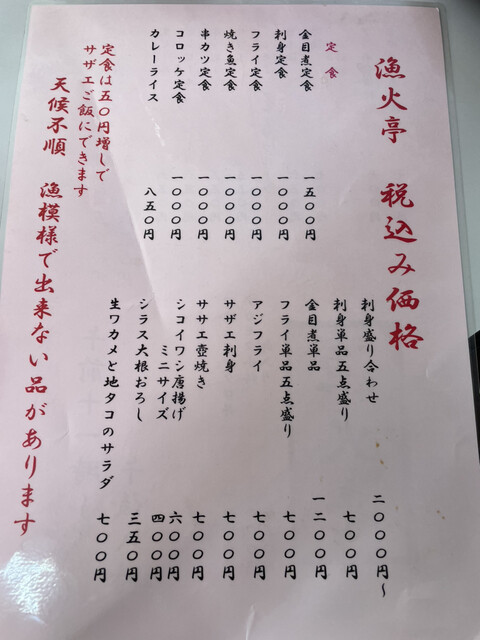 漁火亭 税込み価格
定食
金目煮定食 一五〇〇円
刺身定食 一〇〇〇円
フライ定食 一〇〇〇円
焼き魚定食 一〇〇〇円
串カツ定食 一〇〇〇円
コロッケ定食 一〇〇〇円
カレーライス 八五〇円
定食は五〇円増しで
サザエご飯にできます
刺身盛り合わせ 二〇〇〇円～
刺身単品五点盛り 七〇〇円
金目煮単品 一二〇〇円
フライ単品五点盛り 七〇〇円
アジフライ 七〇〇円
サザエ刺身 七〇〇円
サザエ壺焼き 七〇〇円
シコイワシ唐揚げ 六〇〇円
ミニサイズ 四〇〇円
シラス大根おろし 三五〇円
生ワカメと地タコのサラダ 七〇〇円
天候不順 漁模様で出来ない品があります